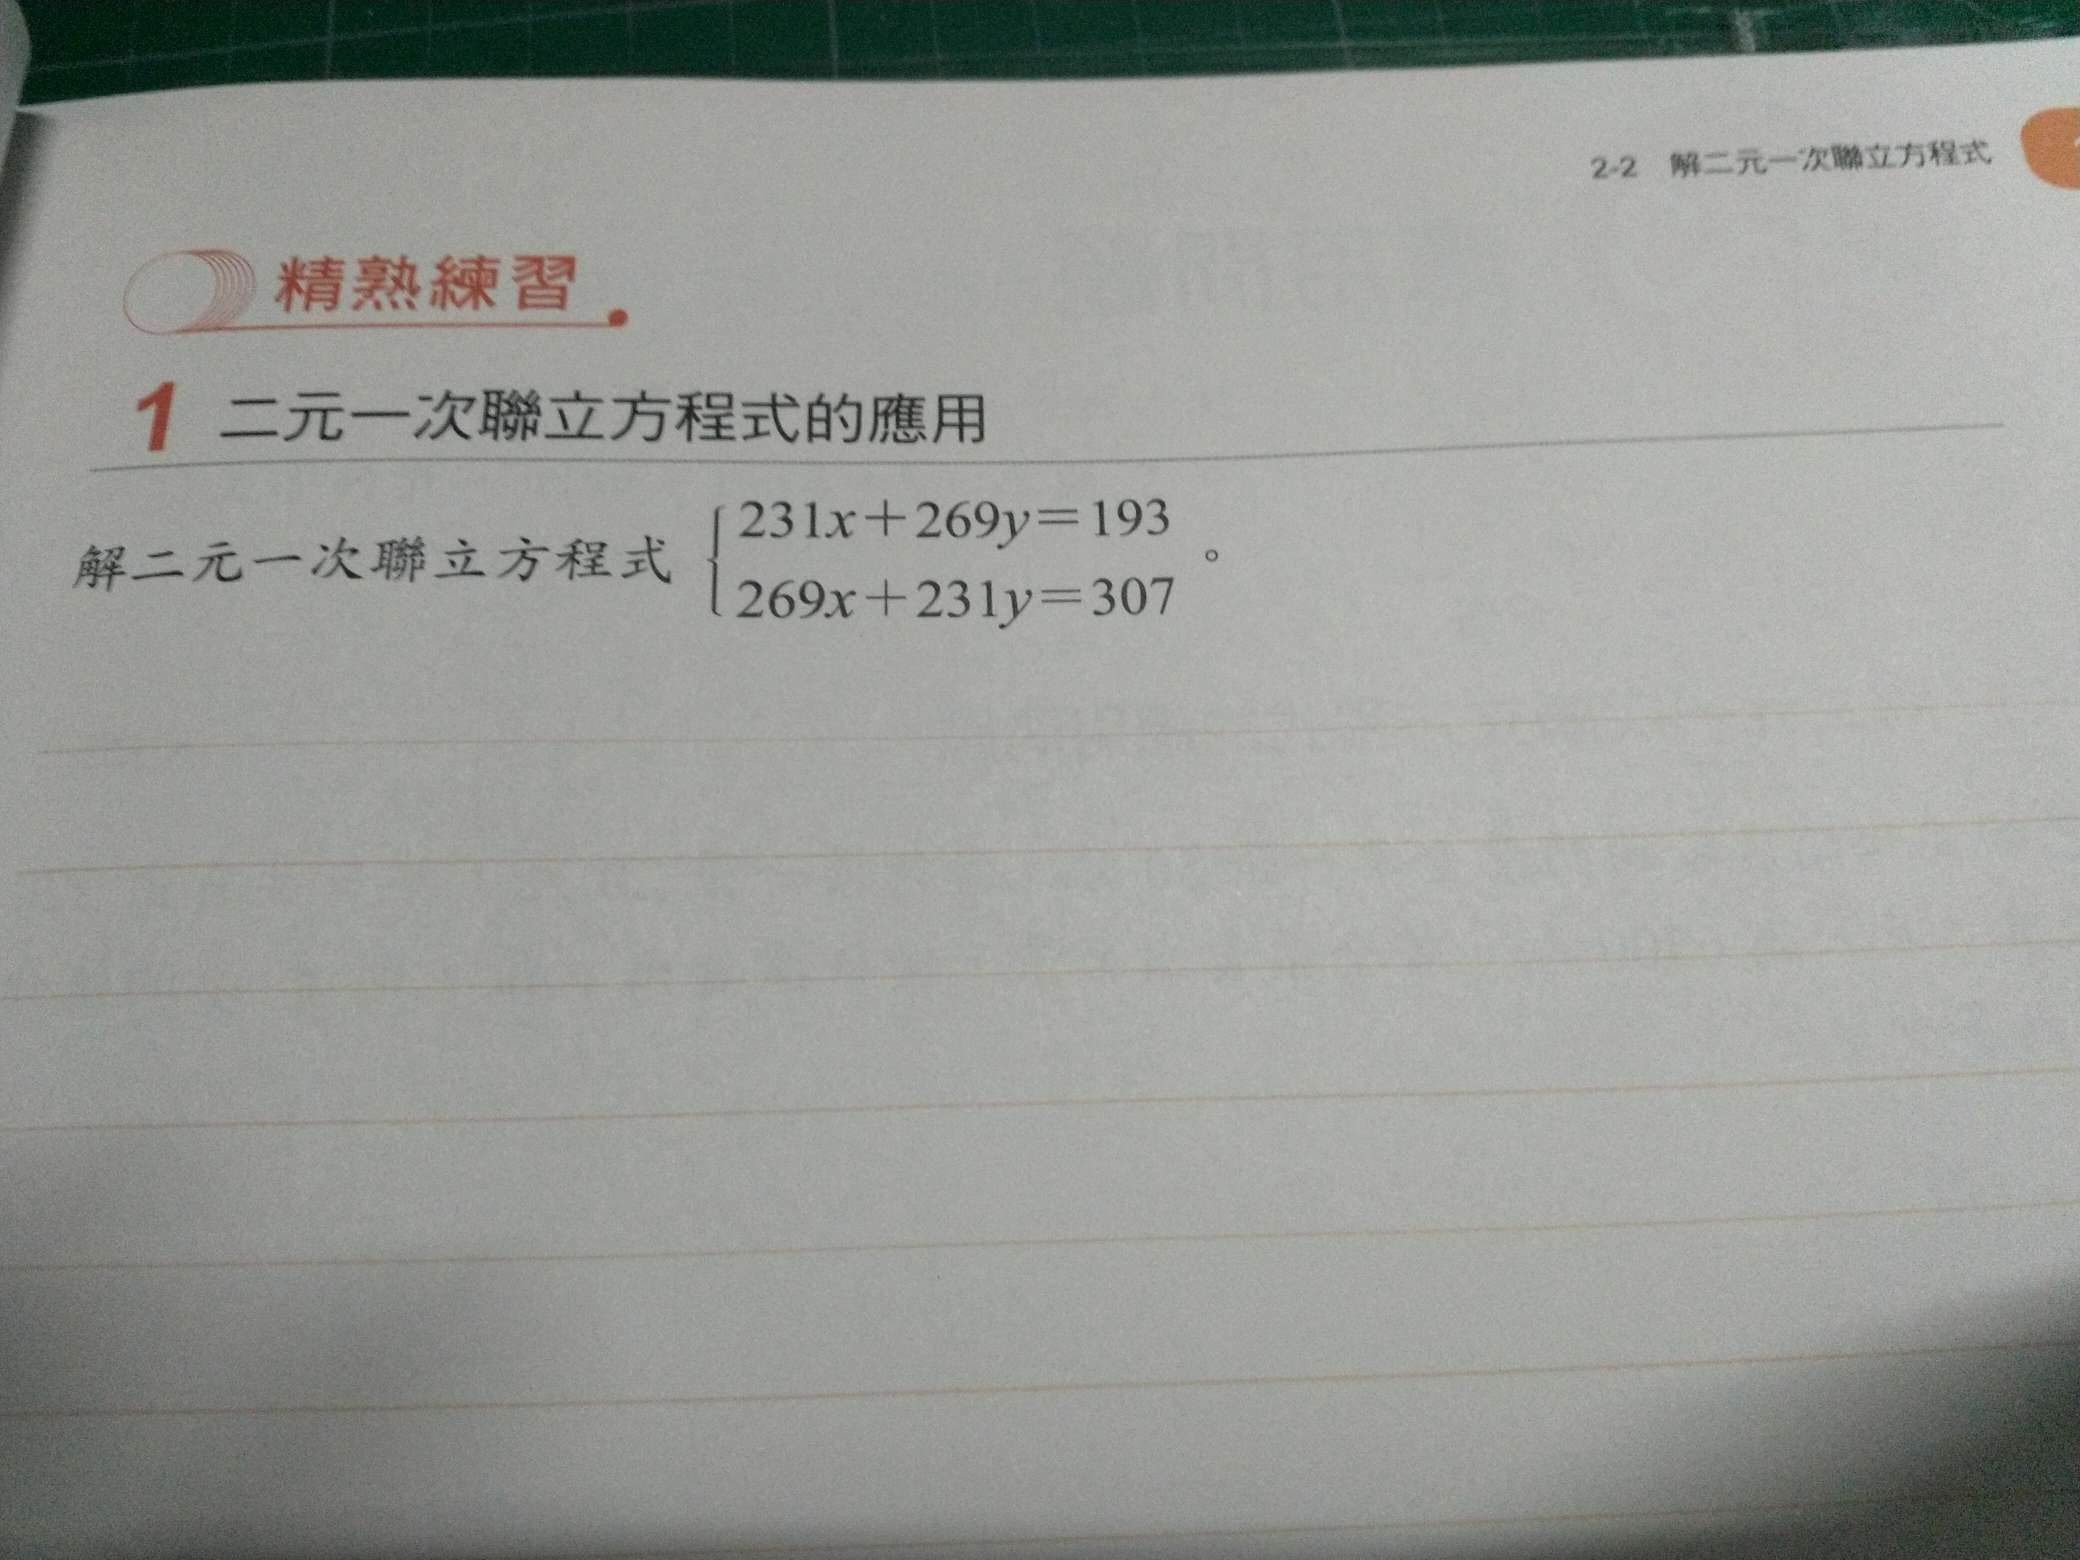 2-2 解二元一次聯立方程式
精熟練習
1 二元一次聯立方程式的應用
解二元一次聯立方程式 { 231x+269y=193
269x+231y=307 。